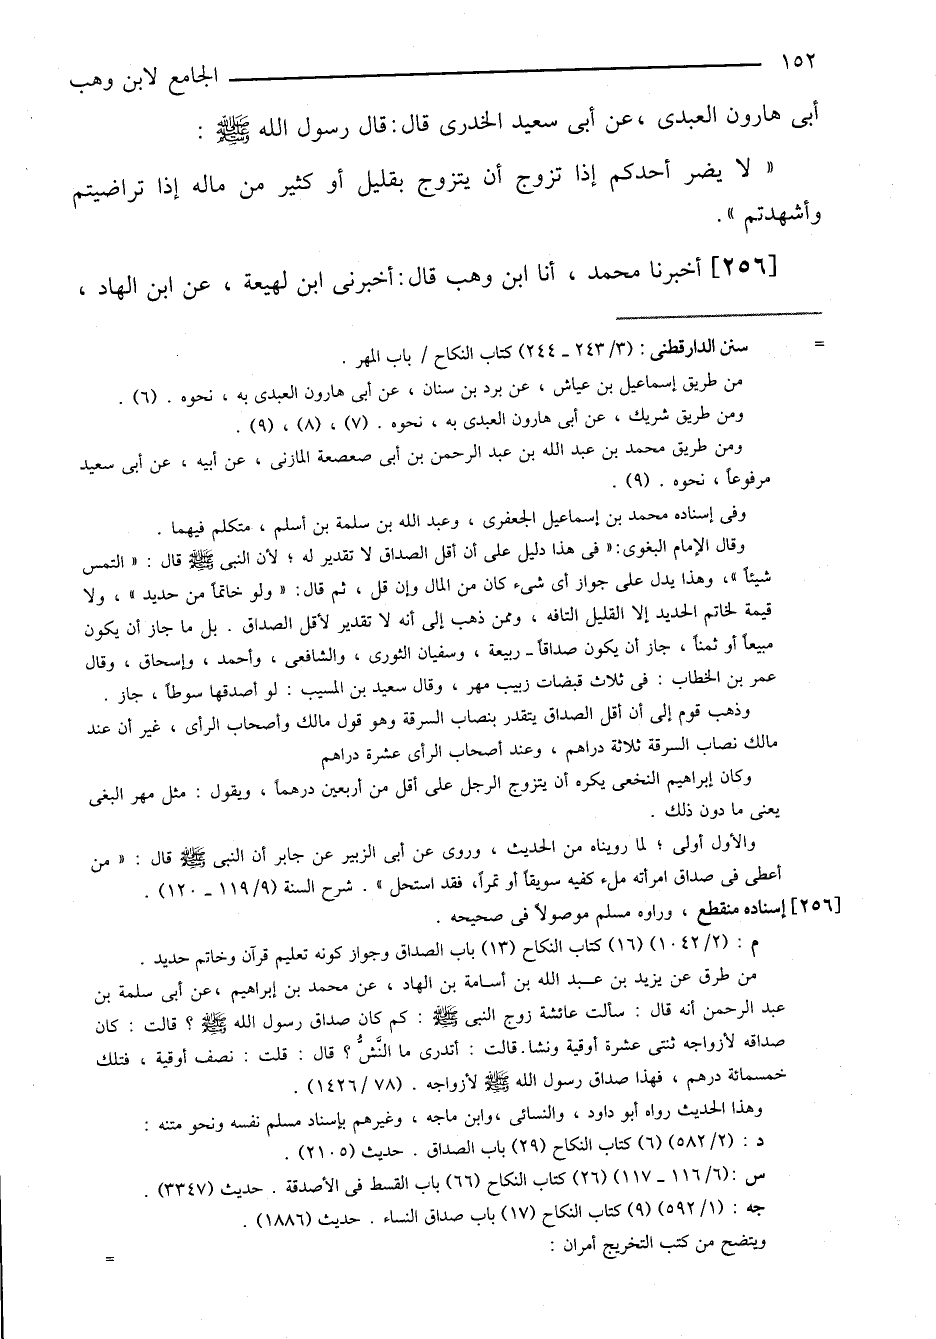 ١٥٢ الجامع لابن وهب
أبى هارون العبدى ، عن أبى سعيد الخدرى قال : قال رسول الله ﷺ :
« لا يضر أحدكم إذا تزوج أن يتزوج بقليل أو كثير من ماله إذا تراضيتم
وأشهدتم » .
[٢٥٦] أخبرنا محمد ، أنا ابن وهب قال : أخبرنى ابن لهيعة ، عن ابن الهاد ،
= سنن الدارقطنى : (٣/ ٢٤٣ ـ ٢٤٤) كتاب النكاح / باب المهر .
من طريق إسماعيل بن عياش ، عن برد بن سنان ، عن أبى هارون العبدى به ، نحوه . (٦) .
ومن طريق شريك ، عن أبى هارون العبدى به ، نحوه . (٧) ، (٨) ، (٩) .
ومن طريق محمد بن عبد الله بن عبد الرحمن بن أبى صعصعة المازنى ، عن أبيه ، عن أبى سعيد
مرفوعاً ، نحوه . (٩) .
وفى إسناده محمد بن إسماعيل الجعفرى ، وعبد الله بن سلمة بن أسلم ، متكلم فيهما .
وقال الإمام البغوى : « فى هذا دليل على أن أقل الصداق لا تقدير له ؛ لأن النبى ﷺ قال : « التمس
شيئاً » ، وهذا يدل على جواز أى شىء كان من المال وإن قل ، ثم قال : « ولو خاتماً من حديد » ، ولا
قيمة لخاتم الحديد إلا القليل التافه ، وممن ذهب إلى أنه لا تقدير لأقل الصداق . بل ما جاز أن يكون
مبيعاً أو ثمناً ، جاز أن يكون صداقاً ـ ربيعة ، وسفيان الثورى ، والشافعى ، وأحمد ، وإسحاق ، وقال
عمر بن الخطاب : فى ثلاث قبضات زبيب مهر ، وقال سعيد بن المسيب : لو أصدقها سوطاً ، جاز .
وذهب قوم إلى أن أقل الصداق يتقدر بنصاب السرقة وهو قول مالك وأصحاب الرأى ، غير أن عند
مالك نصاب السرقة ثلاثة دراهم ، وعند أصحاب الرأى عشرة دراهم
وكان إبراهيم النخعى يكره أن يتزوج الرجل على أقل من أربعين درهماً ، ويقول : مثل مهر البغى
يعنى ما دون ذلك .
والأول أولى ؛ لما رويناه من الحديث ، وروى عن أبى الزبير عن جابر أن النبى ﷺ قال : « من
أعطى فى صداق امرأته ملء كفيه سويقاً أو تمراً، فقد استحل » . شرح السنة (٩/ ١١٩ ـ ١٢٠) .
[٢٥٦] إسناده منقطع ، وراوه مسلم موصولاً فى صحيحه .
م : (٢/ ١٠٤٢) (١٦) كتاب النكاح (١٣) باب الصداق وجواز كونه تعليم قرآن وخاتم حديد .
من طرق عن يزيد بن عبد الله بن أسامة بن الهاد ، عن محمد بن إبراهيم ، عن أبى سلمة بن
عبد الرحمن أنه قال : سألت عائشة زوج النبى ﷺ : كم كان صداق رسول الله ﷺ ؟ قالت : كان
صداقه لأزواجه ثنتى عشرة أوقية ونشا . قالت : أتدرى ما النَّشُّ ؟ قال : قلت : نصف أوقية ، فتلك
خمسمائة درهم ، فهذا صداق رسول الله ﷺ لأزواجه . (٧٨ /١٤٢٦) .
وهذا الحديث رواه أبو داود ، والنسائى ، وابن ماجه ، وغيرهم بإسناد مسلم نفسه ونحو متنه :
د : (٢/ ٥٨٢) (٦) كتاب النكاح (٢٩) باب الصداق . حديث (٢١٠٥) .
س : (٦/ ١١٦ ـ ١١٧) (٢٦) كتاب النكاح (٦٦) باب القسط فى الأصدقة . حديث (٣٣٤٧) .
جه : (١/ ٥٩٢) (٩) كتاب النكاح (١٧) باب صداق النساء . حديث (١٨٨٦) .
ويتضح من كتب التخريج أمران :
=